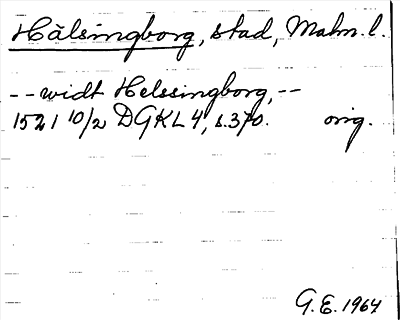 Hälsingborg, stad, Malm. l.
-- widt Helssingborg, --
1521 10/2 DGKL 4, s. 370. orig.
G.E. 1964